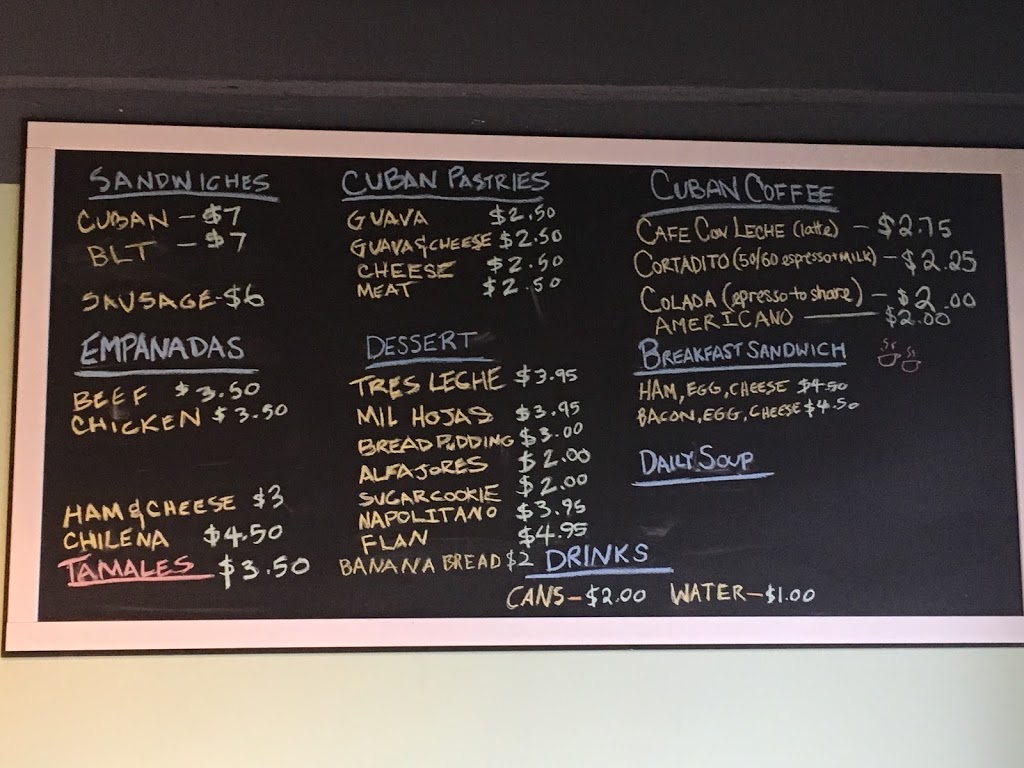 SANDWICHES
CUBAN - $7
BLT - $7
SAUSAGE - $6
EMPANADAS
BEEF $3.50
CHICKEN $3.50
HAM & CHEESE $3
CHILENA $4.50
TAMALES $3.50
CUBAN PASTRIES
GUAVA $2.50
GUAVA & CHEESE $2.50
CHEESE $2.50
MEAT $2.50
DESSERT
TRES LECHE $3.95
MIL HOJAS $3.95
BREAD PUDDING $3.00
ALFAJORES $2.00
SUGAR COOKIE $2.00
NAPOLITANO $3.95
FLAN $4.95
BANANA BREAD $2
CUBAN COFFEE
CAFE CON LECHE (latte) - $2.75
CORTADITO (50/60 espresso+MILK) - $2.25
COLADA (epresso to share) - $2.00
AMERICANO — $2.00
BREAKFAST SANDWICH
HAM, EGG, CHEESE $4.50
BACON, EGG, CHEESE $4.50
DAILY SOUP
DRINKS
CANS - $2.00 WATER - $1.00